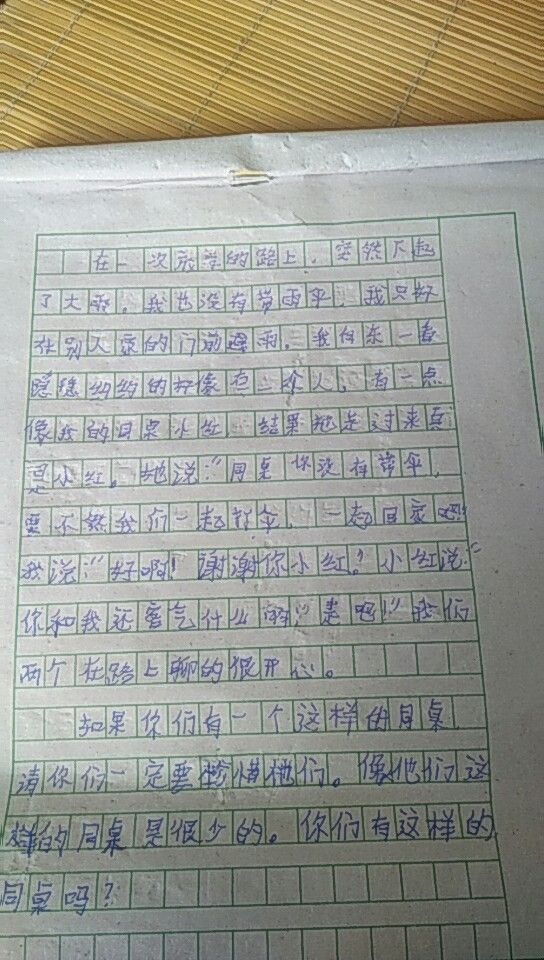 在一次放学的路上，突然下起
了大雨，我也没有带雨伞，我只好
在别人家的门前避雨。我向东一看
隐隐约约的好像有一个人，有一点
像我的同桌小红，结果她走过来真
是小红。她说：“同桌你没有带伞，
要不然我们一起打伞，一起回家吧!”
我说：“好啊！谢谢你小红！小红说：“
你和我还客气什么的”走吧！”我们
两个在路上聊的很开心。
如果你们有一个这样的同桌
请你们一定要珍惜他们。像他们这
样的同桌是很少的。你们有这样的
同桌吗？